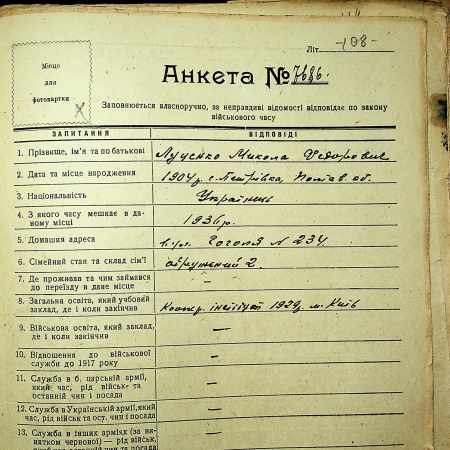 Літ. -108-
Місце
для
фотокартки
Анкета № 7686.
Заповнюється власноручно, за неправдиві відомості відповідає по закону
військового часу
ЗАПИТАННЯ ВІДПОВІДІ
1. Прізвище, ім'я та по батькові Луценко Микола Федорович
2. Дата та місце народження 1904 р. с. Петрівка, Полтав. об.
3. Національність Українець
4. З якого часу мешкає в да-
ному місці 1936 р.
5. Домашня адреса вул. Гоголя N 234
6. Сімейний стан та склад сім'ї одружений 2
7. Де проживав та чим займався
до переїзду в дане місце
8. Загальна освіта, який учбовий
заклад, де і коли закінчив Коопер. інститут 1929 р. м. Київ
9. Військова освіта, який заклад,
де і коли закінчив —
10. Відношення до військової
служби до 1917 року —
11. Служба в б. царській армії,
який час, рід військ та
останній чин і посада —
12. Служба в Українській армії, який
час, рід військ та ост. чин і посада —
13. Служба в інших арміях (за ви-
нятком червоної) — рід військ,
який час останній чин та посада —